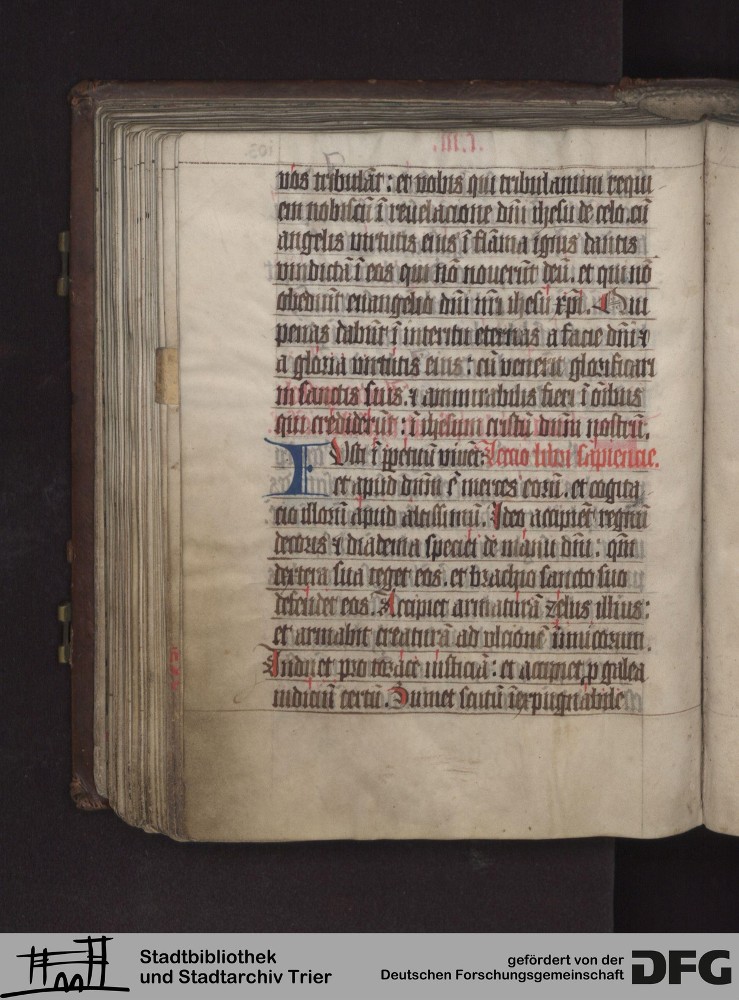 vos tribulāt: et vobis qui tribulamini requi
em nobiscū ī reuelacione dn̄i ihesu de celo. cū
angelis virtutis eius ī flāma ignis dantis
vindictā ī eos qui nō nouerūt deū. et qui nō
obediūt euangelio dn̄i nr̄i ihesu xp̄i. Qui
penas dabūt ī interitu eternas a facie dn̄i ⁊
a gloria virtutis eius: cū venerit glorificari
in sanctis suis. ⁊ ammirabilis fieri ī oībus
qui crediderūt: ī ihesum cristū dn̄m nostrū.
IVsti ī ꝑpetuū viuēt: Lectio libri sapiencie.
et apud dn̄m ē merces eorū. et cogita
cio illorū apud altissimū. Ideo accipiēt regnū
decoris ⁊ diadema speciei de manu dn̄i: qm̄
dextera sua teget eos. et brachio sancto suo
defendet eos. Accipiet armaturā zelus illius:
et armabit creaturā ad vlcionē inimicorum.
Induet pro torace iusticiā: et accipiet ꝓ galea
iudiciū certū. Sumet scutū īexpugnabile
Stadtbibliothek
und Stadtarchiv Trier
gefördert von der
Deutschen Forschungsgemeinschaft
DFG